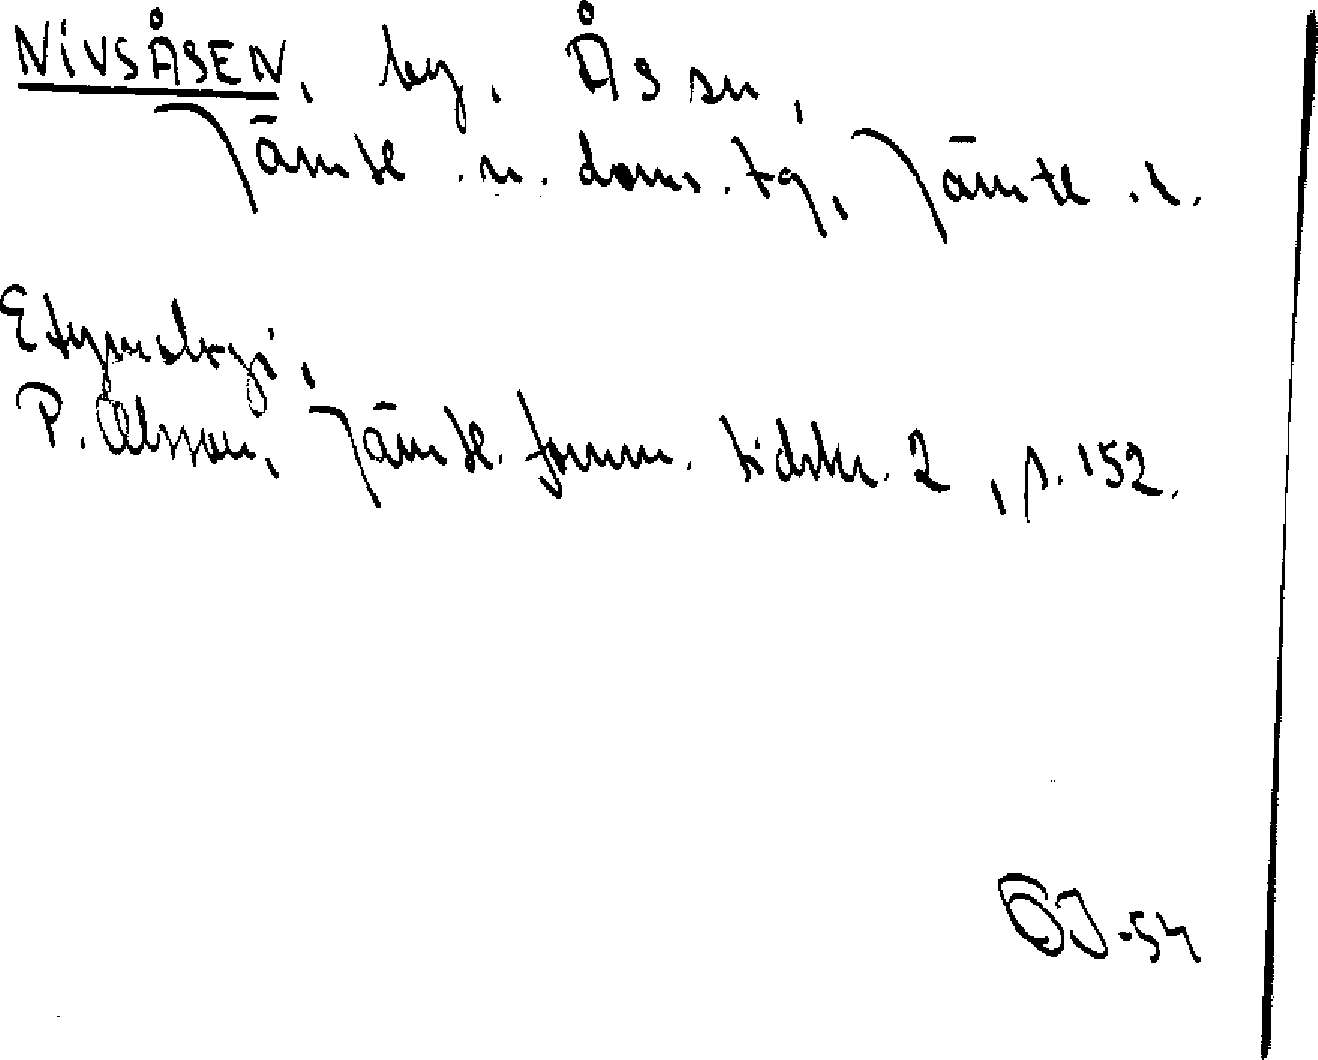 NIVSÅSEN, by, Ås sn,
Jämtl. n. doms. tg, Jämtl. l.
Etymologi,
P. Olsson, Jämtl. fornm. tidskr. 2, s. 152.
ÖJ-54